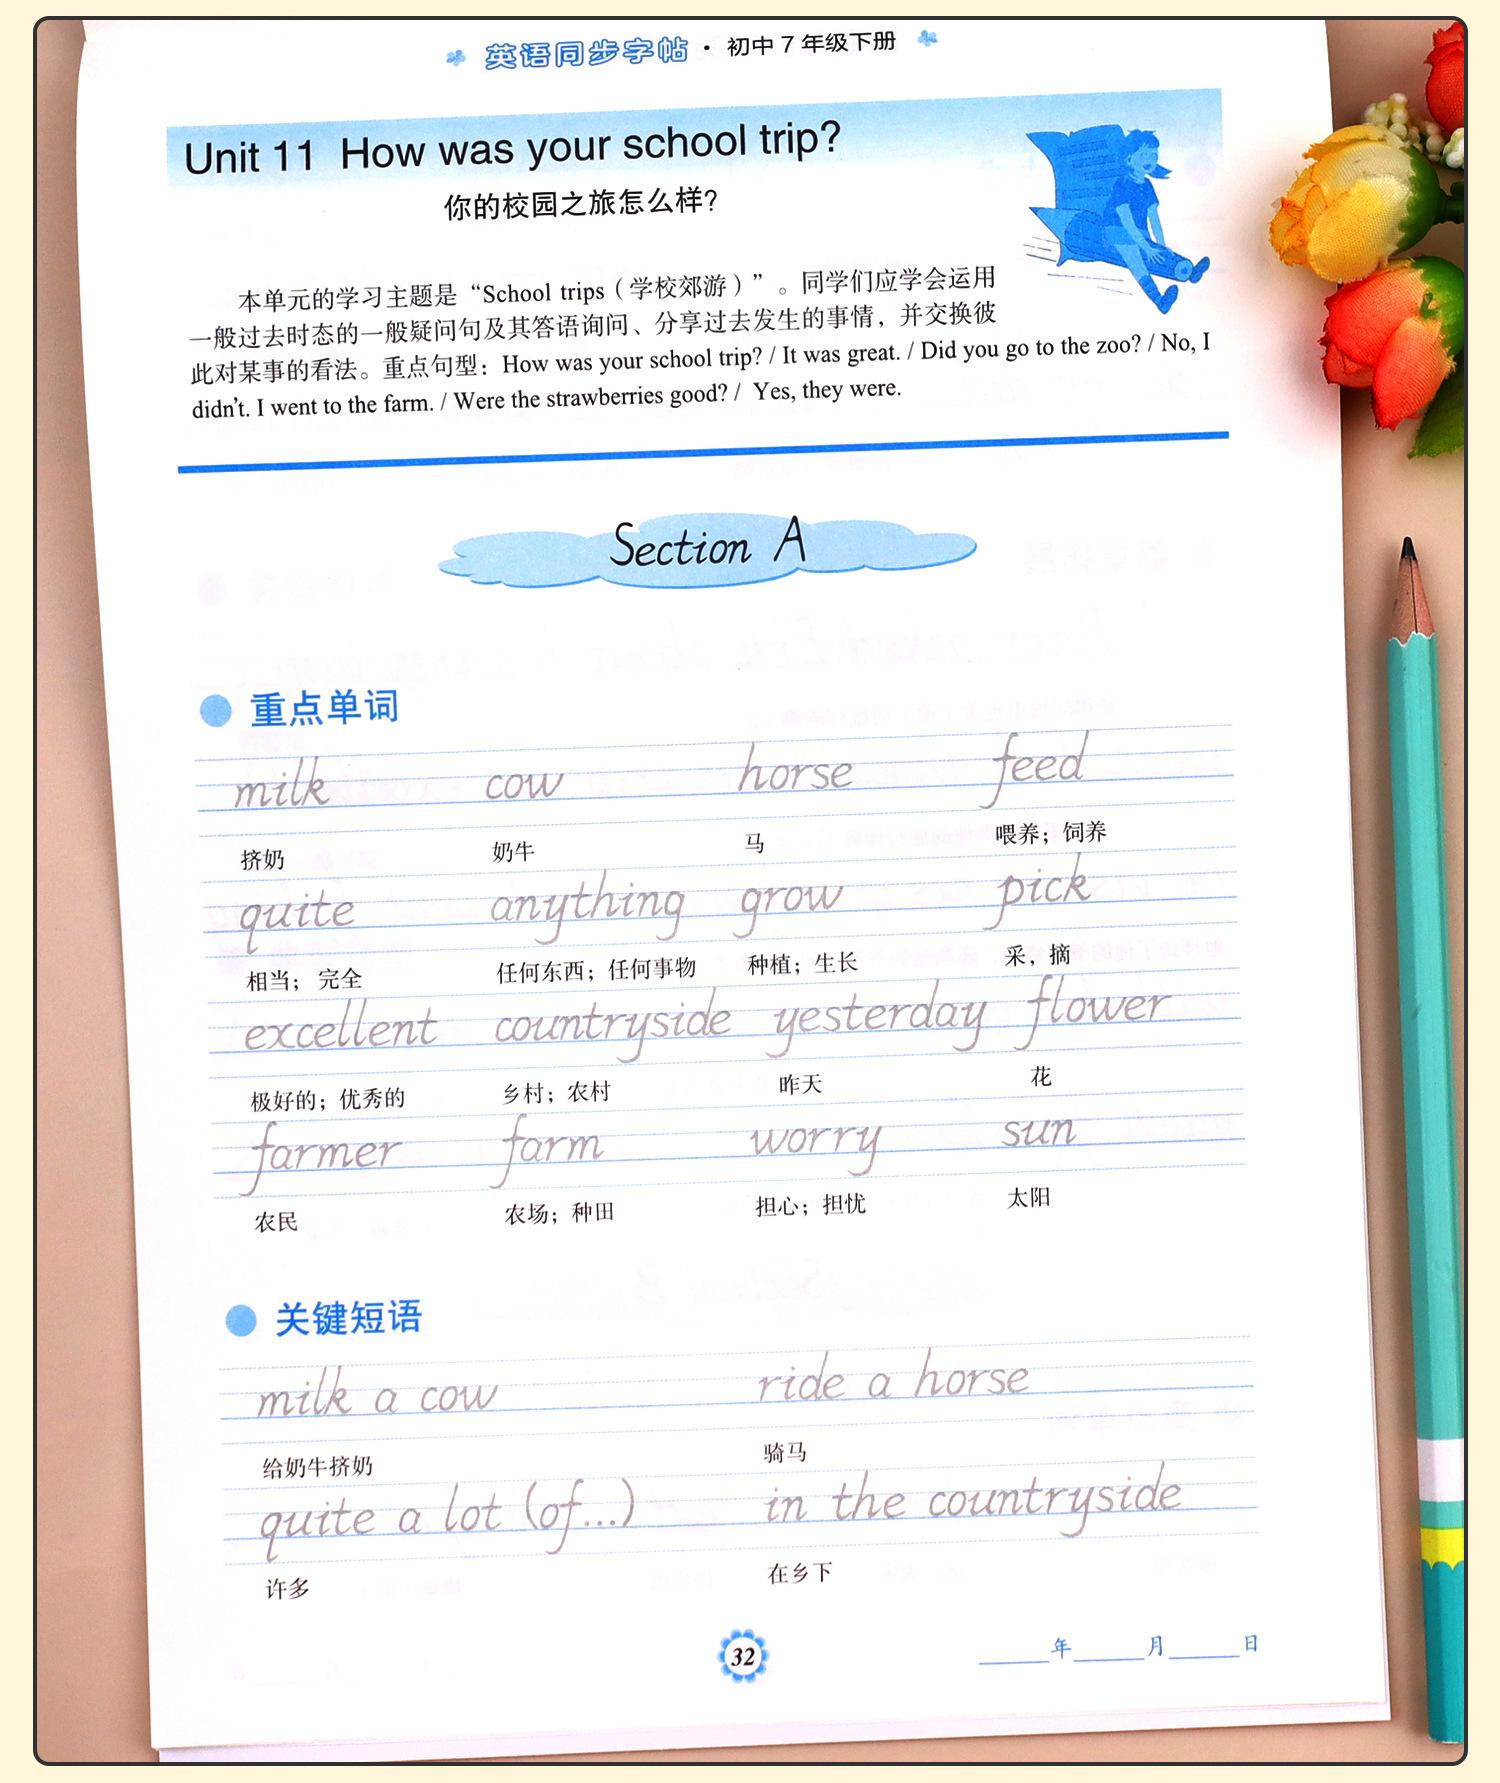 英语同步字帖 · 初中7年级下册
Unit 11 How was your school trip?
你的校园之旅怎么样?
本单元的学习主题是“School trips(学校郊游)”。同学们应学会运用
一般过去时态的一般疑问句及其答语询问、分享过去发生的事情，并交换彼
此对某事的看法。重点句型：How was your school trip? / It was great. / Did you go to the zoo? / No, I
didn't. I went to the farm. / Were the strawberries good? / Yes, they were.
Section A
重点单词
milk cow horse feed
挤奶 奶牛 马 喂养；饲养
quite anything grow pick
相当；完全 任何东西；任何事物 种植；生长 采，摘
excellent countryside yesterday flower
极好的；优秀的 乡村；农村 昨天 花
farmer farm worry sun
农民 农场；种田 担心；担忧 太阳
关键短语
milk a cow ride a horse
给奶牛挤奶 骑马
quite a lot (of...) in the countryside
许多 在乡下
32
年 月 日